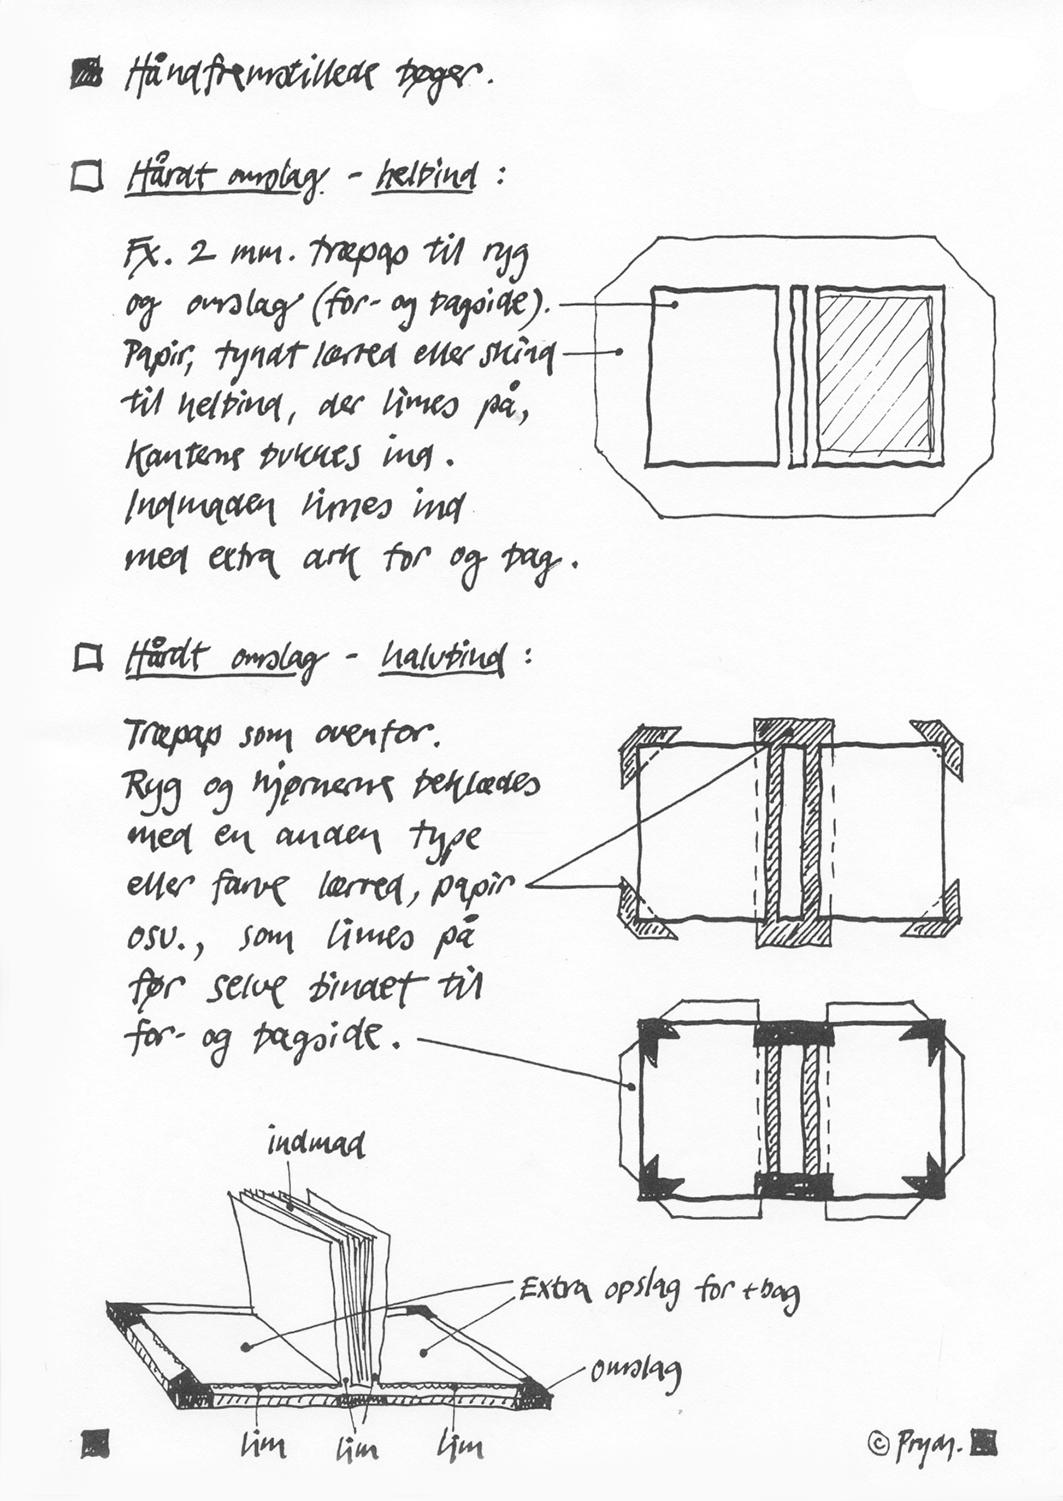 Håndfremstillede bøger.
Hårdt omslag - helbind :
Fx. 2 mm. træpap til ryg
og omslag (for- og bagside).
Papir, tyndt lærred eller skind
til helbind, der limes på,
kanterne bukkes ind.
Indmaden limes ind
med extra ark for og bag.
Hårdt omslag - halvbind :
Træpap som ovenfor.
Ryg og hjørnerne beklædes
med en anden type
eller farve lærred, papir
osv., som limes på
før selve bindet til
for- og bagside.
indmad
Extra opslag for + bag
omslag
lim lim lim
©